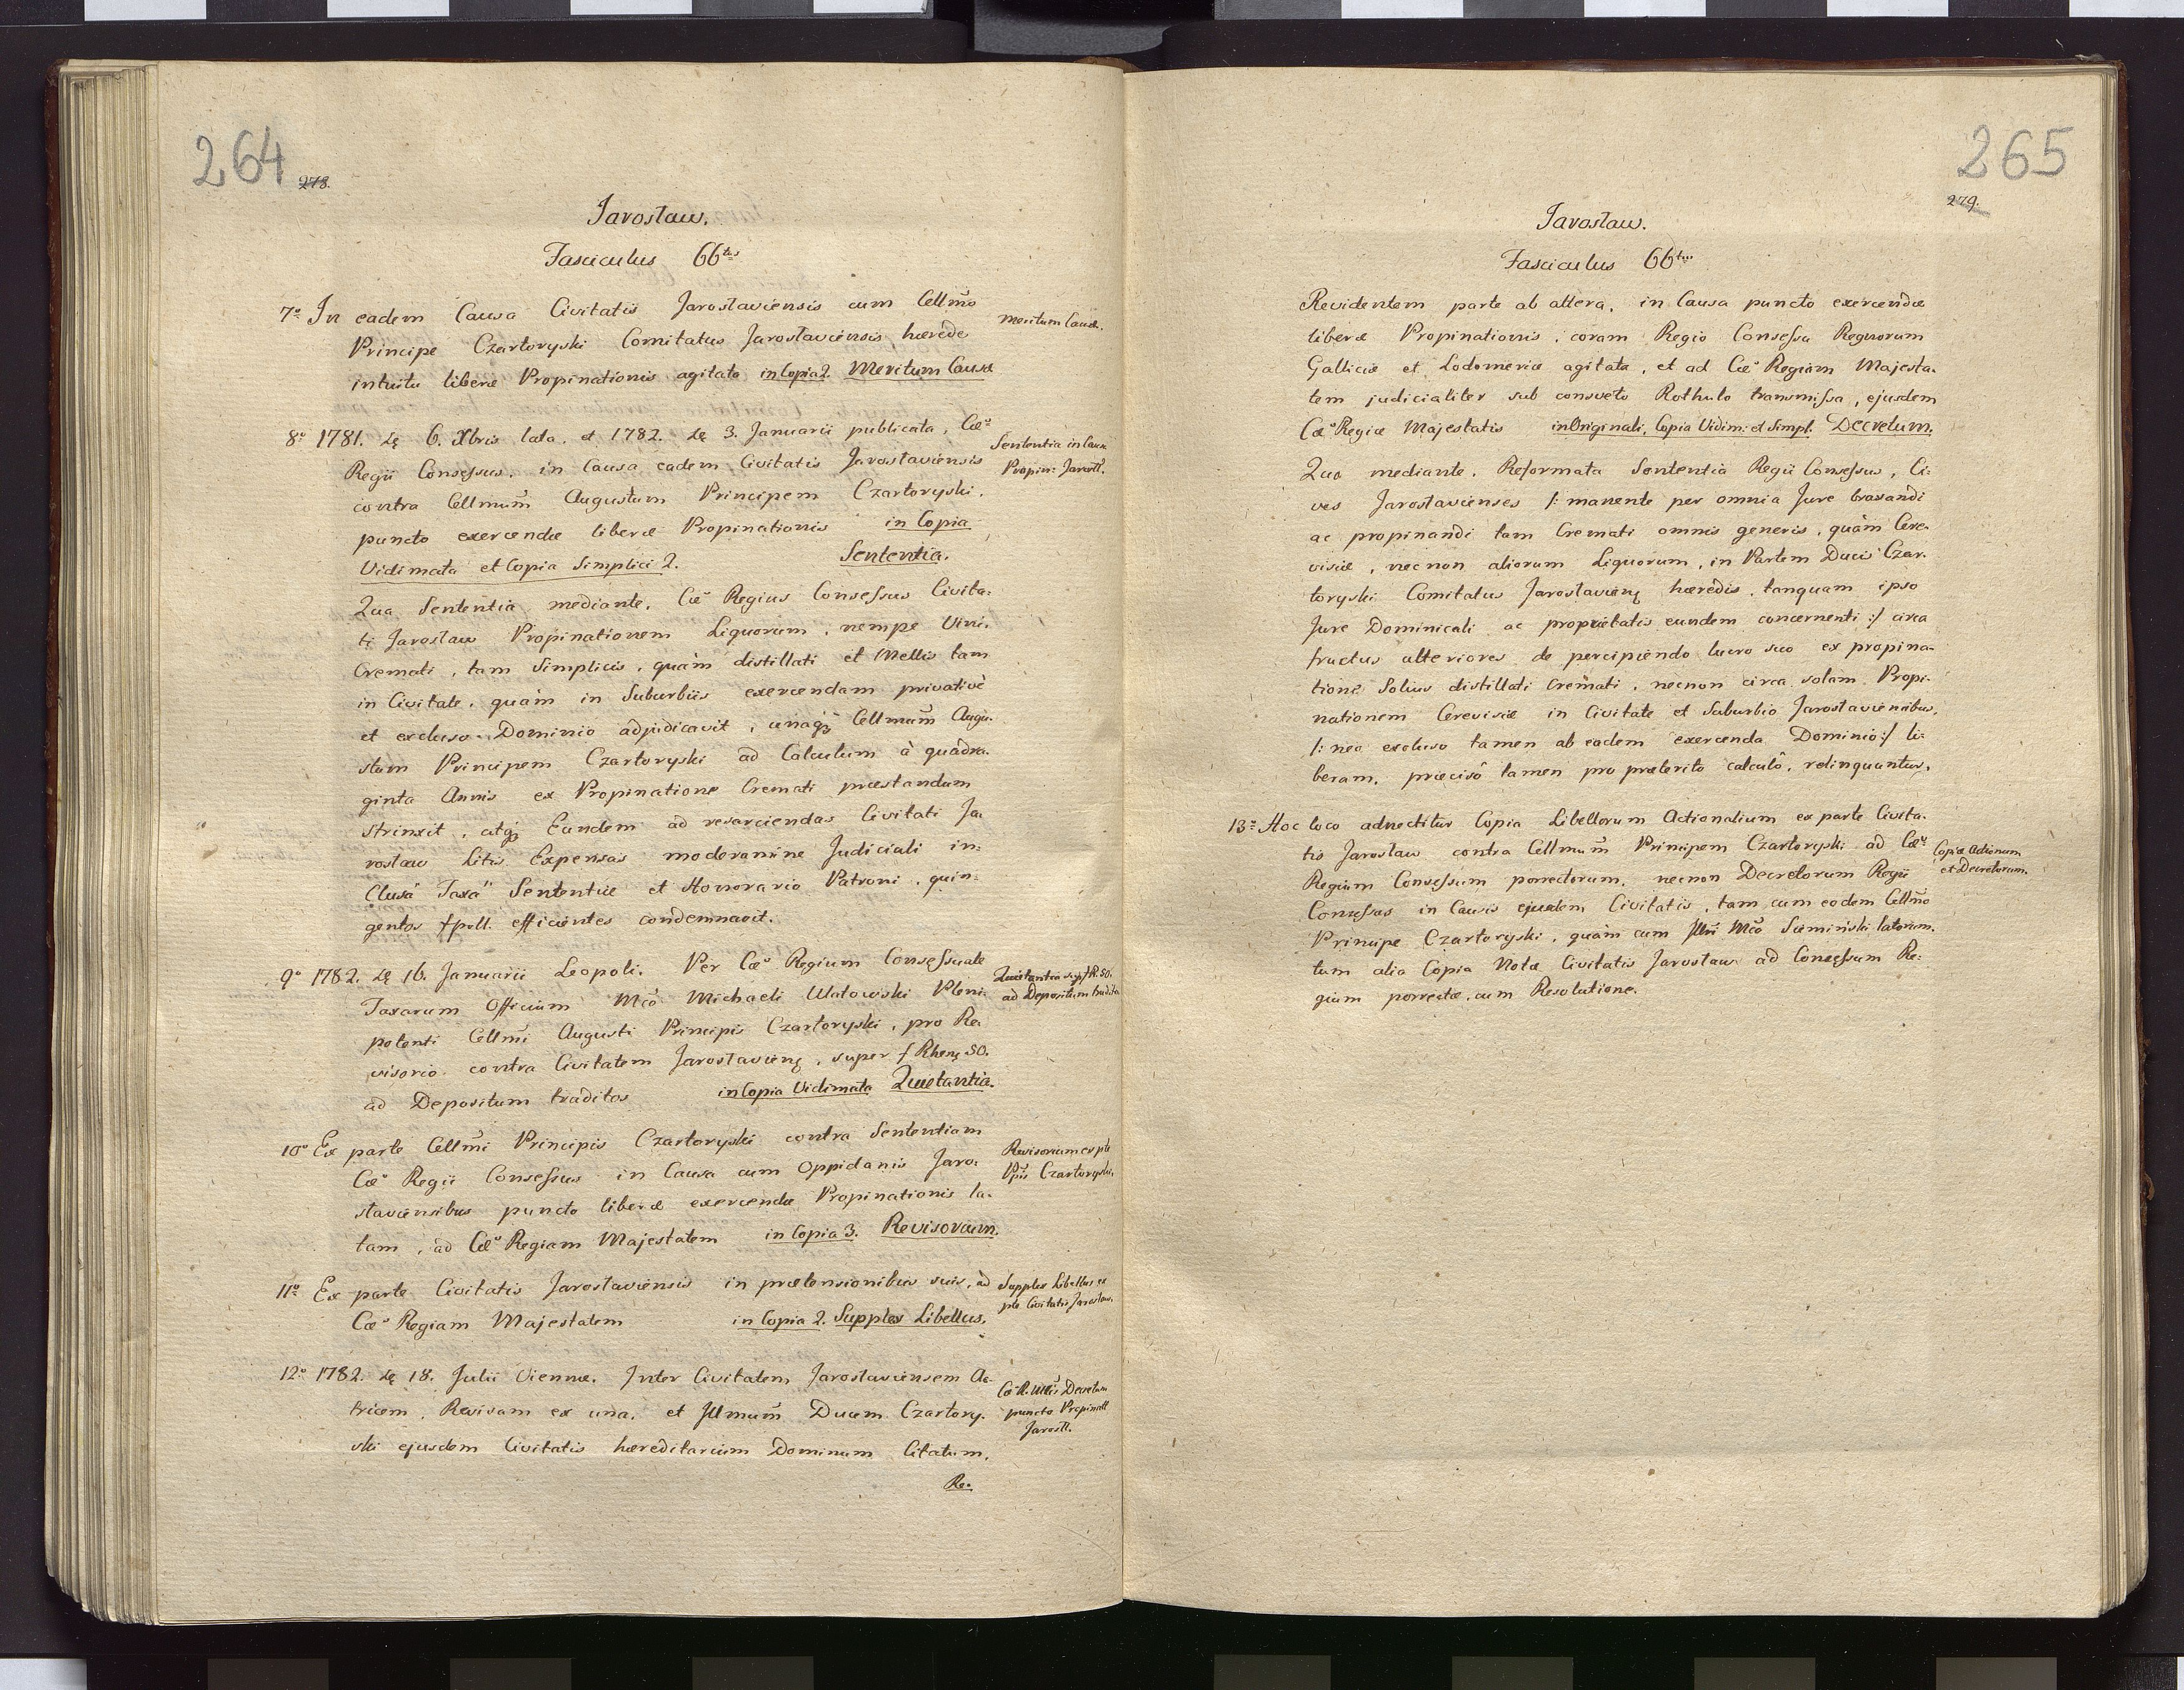 264
278.
Jarosław.
Fasciculus 66tus
7o In eadem Causa Civitatis Jarosłaviensis cum Cellmo
Principe Czartoryski Comitatus Jarosłaviensis hærede
intuitu liberæ Propinationis agitata in Copia 2. Meritum Causæ
Meritum Causæ.
8o 1781. de 6. Xbris lata, et 1782. de 3. Januarii publicata, Cæo
Regii Consessus, in Causa eadem Civitatis Jarosłaviensis
contra Cellmum Augustum Principem Czartoryski,
puncto exercendæ liberæ Propinationis in Copia
Vidimata et Copia Simplici 2. Sententia.
Sententia in Causa
Propin: Jarosł.
Qua Sententia mediante, Cæo Regius Consessus Civita-
ti Jarosław Propinationem Liquorum, nempe Vini,
Cremati, tam Simplicis, quàm distillati et Mellis tam
in Civitate, quàm in Suburbiis exercendam privativè
et excluso Dominio adjudicavit, unaq; Cellmum Augu-
stum Principem Czartoryski ad Calculum à quadra-
ginta Annis ex Propinatione Cremati præstandum
strinxit, atq; Eundem ad resarciendas Civitati Ja-
rosław Litis Expensas moderamine Judiciali in-
clusâ Taxâ Sententiæ et Honorario Patroni, quin-
gentos fpoll. efficientes condemnavit.
9o 1782. de 16. Januarii Leopoli. Per Cæo Regium Consessuale
Taxarum Officium Mco Michaeli Ulatowski Pleni-
potenti Cellmi Augusti Principis Czartoryski, pro Re-
visorio contra Civitatem Jarosławieng, super f Rheng 50.
ad Depositum traditos in Copia Vidimata Quietantia.
Quietantia sup f R. 50.
ad Depositum tradita
10o Ex parte Cellmi Principis Czartoryski contra Sententiam
Cæo Regii Consessus in Causa cum Oppidanis Jaro-
sławiensibus puncto liberæ exercendæ Propinationis la-
tam, ad Cæo Regiam Majestatem in Copia 3. Revisorium.
Revisorium ex pte
Ppis Czartoryski.
11o Ex parte Civitatis Jarosłaviensis in prætensionibus suis, ad
Cæo Regiam Majestatem in Copia 2. Supplex Libellus.
Supplex Libellus ex
pte Civitatis Jarosław.
12o 1782. de 18. Julii Viennæ. Inter Civitatem Jarosłaviensem Ac-
tricem, Revisam ex una, et Illmum Ducem Czartory-
ski ejusdem Civitatis hæreditarium Dominum Citatum,
Cæo R. Mtis Decretum
puncto Propinatt
Jarosł.
Re-
265
279.
Jarosław.
Fasciculus 66tus
Revidentem parte ab altera, in Causa puncto exercendæ
liberæ Propinationis, coram Regio Consessu Regnorum
Galliciæ et Lodomeriæ agitata, et ad Cæo Regiam Majesta-
tem judicialiter sub consveto Rothulo transmissa, ejusdem
Cæo Regiæ Majestatis in Originali, Copia Vidim: et Simpl. Decretum.
Quo mediante, Reformata Sententia Regii Consessus, Ci-
ves Jarosławienses /: manente per omnia Jure braxandi
ac propinandi tam Cremati omnis generis, quàm Cere-
visiæ, necnon aliorum Liquorum, in Partem Ducis Czar-
toryski Comitatus Jarosławieng hæredis, tanquam ipso
Jure Dominicali ac proprietatis eundem concernenti :/ circa
fructus ulteriores de percipiendo lucro suo ex propina-
tione Solius distillati Cremati, necnon circa solam Propi-
nationem Cerevisiæ in Civitate et Suburbio Jarosławiensibus,
/: nec excluso tamen ab eadem exercenda Dominio :/ li-
beram, præcisô tamen pro præterito calculô, relinquuntur.
13o Hoc loco adnectitur Copia Libellorum Actionalium ex parte Civita-
tis Jarosław contra Cellmum Principem Czartoryski ad Cæo
Regium Consessum porrectorum, necnon Decretorum Regii
Consessus in Causis ejusdem Civitatis, tam cum eodem Cellmo
Principe Czartoryski, quàm cum Mco Siemiński latorum,
tum alia Copia Notæ Civitatis Jarosław ad Consessum Re-
gium porrectæ, cum Resolutione.
Copiæ Actionum
et Decretorum.